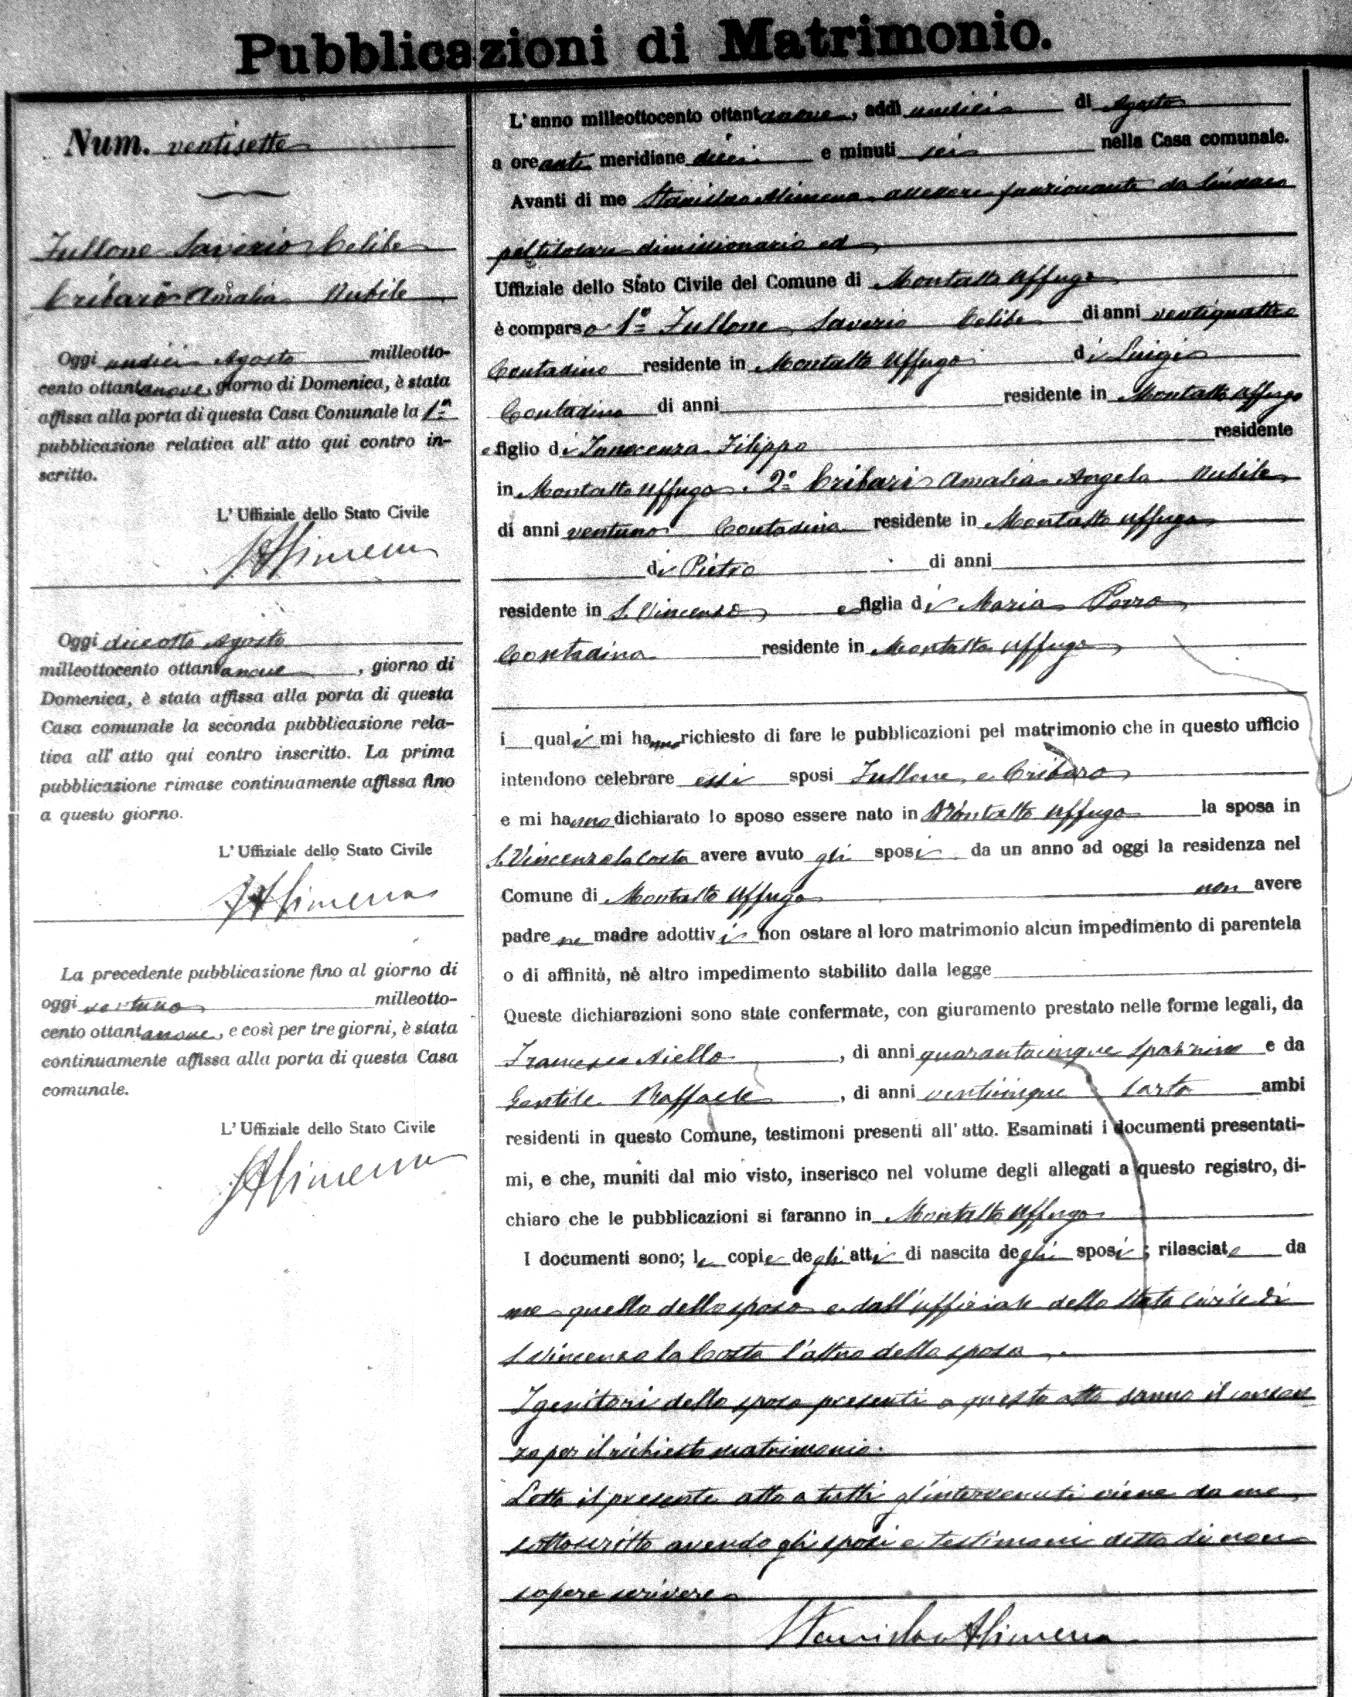 Pubblicazioni di Matrimonio.
Num. ventisette
Fullone Saverio Celibe
Cribari Amalia Nubile
Oggi undici Agosto milleotto-
cento ottantanove, giorno di Domenica, è stata
affissa alla porta di questa Casa Comunale la 1a
pubblicazione relativa all' atto qui contro in-
scritto.
L' Uffiziale dello Stato Civile
SAlimena
Oggi diciotto Agosto
milleottocento ottantanove, giorno di
Domenica, è stata affissa alla porta di questa
Casa comunale la seconda pubblicazione rela-
tiva all' atto qui contro inscritto. La prima
pubblicazione rimase continuamente affissa fino
a questo giorno.
L' Uffiziale dello Stato Civile
SAlimena
La precedente pubblicazione fino al giorno di
oggi ventuno milleotto-
cento ottantanove, e così per tre giorni, è stata
continuamente affissa alla porta di questa Casa
comunale.
L' Uffiziale dello Stato Civile
SAlimena
L' anno milleottocento ottantanove, addì undici di Agosto
a ore anti meridiane dieci e minuti sei nella Casa comunale.
Avanti di me Stanislao Alimena assessore funzionante da Sindaco
pel titolare dimissionario ed
Uffiziale dello Stato Civile del Comune di Montalto Uffugo
è comparso 1° Fullone Saverio Celibe di anni ventiquattro
Contadino residente in Montalto Uffugo di Luigi
Contadino di anni residente in Montalto Uffugo
e figlio di Innocenza Filippo residente
in Montalto Uffugo. 2° Cribari Amalia Angela Nubile
di anni ventuno Contadina residente in Montalto Uffugo
di Pietro di anni
residente in S. Vincenzo e figlia di Maria Porro
Contadina residente in Montalto Uffugo
i quali mi hanno richiesto di fare le pubblicazioni pel matrimonio che in questo ufficio
intendono celebrare essi sposi Fullone e Cribaro
e mi hanno dichiarato lo sposo essere nato in Montalto Uffugo la sposa in
S. Vincenzo la Costa avere avuto gli sposi da un anno ad oggi la residenza nel
Comune di Montalto Uffugo non avere
padre ne madre adottivi non ostare al loro matrimonio alcun impedimento di parentela
o di affinità, nè altro impedimento stabilito dalla legge
Queste dichiarazioni sono state confermate, con giuramento prestato nelle forme legali, da
Francesco Aiello, di anni quarantacinque spazzino e da
Gentile Raffaele, di anni venticinque sarto ambi
residenti in questo Comune, testimoni presenti all' atto. Esaminati i documenti presentati-
mi, e che, muniti dal mio visto, inserisco nel volume degli allegati a questo registro, di-
chiaro che le pubblicazioni si faranno in Montalto Uffugo
I documenti sono; le copie degli atti di nascita degli sposi; rilasciate da
me quello dello sposo e dall'uffiziale dello Stato Civile di
S. Vincenzo la Costa l'altro della sposa.
I genitori dello sposo presenti a questo atto danno il consen-
zo per il richiesto matrimonio.
Letto il presente atto a tutti gl'intervenuti viene da me
sottoscritto avendo gli sposi e testimoni detto di non
sapere scrivere
Stanislao Alimena